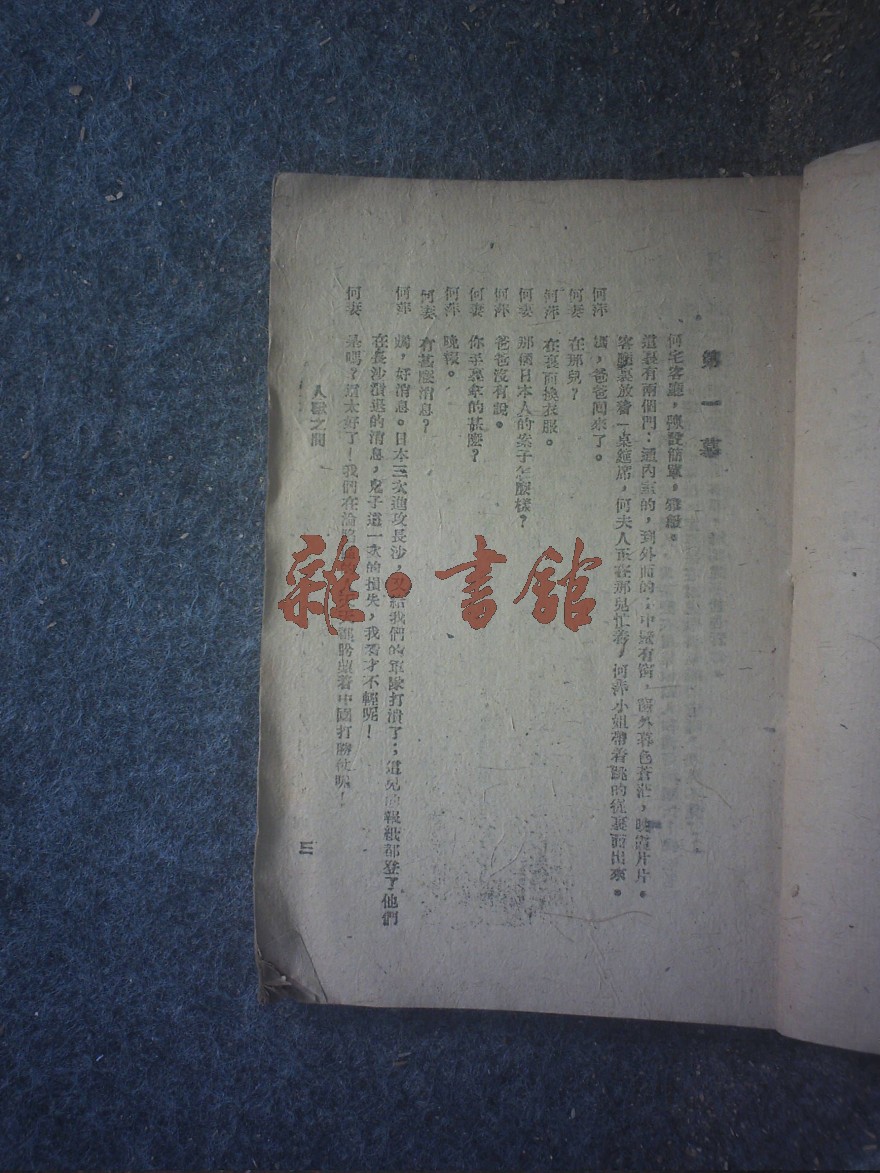 第一幕
何宅客廳,陳設簡單,雅緻。
這裏有兩個門:通內室的,到外面的;中嵌有窗,窗外暮色蒼茫,晚霞片片。
客廳裏放着一桌筵席,何夫人正在那兒忙着,何萍小姐帶着跳的從裏面出來。
何萍 媽,爸爸回來了。
何妻 在那兒?
何萍 在裏面換衣服。
何妻 那個日本人的案子怎麼樣?
何萍 爸爸沒有說。
何妻 你手裏拿的甚麼?
何萍 晚報。
何妻 有甚麼消息?
何萍 媽,好消息。日本三次進攻長沙,又給我們的軍隊打潰了;這兒的報紙都登了他們
在長沙潰退的消息,鬼子這一次的損失,我看才不輕呢!
何妻 是嗎?這太好了!我們在淪陷 着中國打勝仗呢!
人獸之間
三
雜·書館